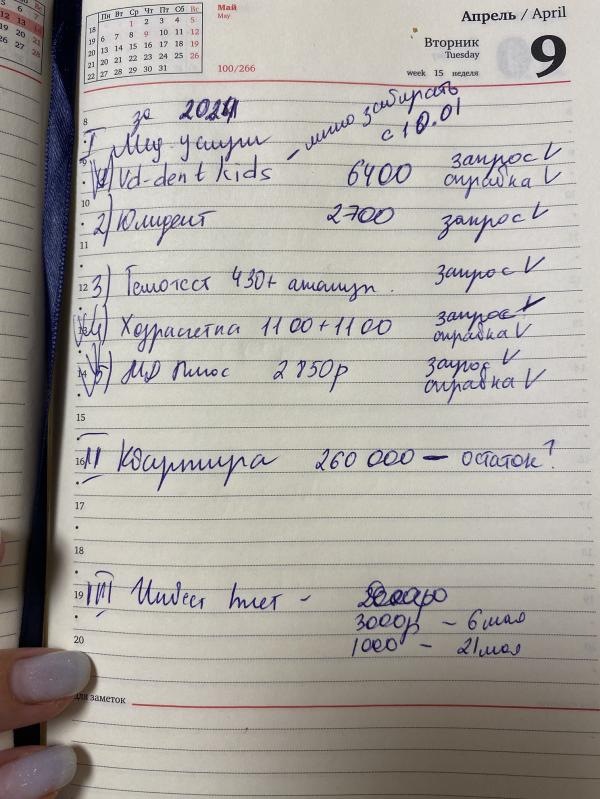 Май
May
Пн Вт Ср Чт Пт Сб Вс
18 1 2 3 4 5
19 6 7 8 9 10 11 12
20 13 14 15 16 17 18 19
21 20 21 22 23 24 25 26
22 27 28 29 30 31
100/266
Апрель / April
Вторник
Tuesday
week 15 неделя
9
8
за 2024
I Мед. услуги – можно забирать с 10.01
9
1) Vd-dent kids 6400 запрос V
справка V
10
2) Юлидент 2700 запрос V
11
12
3) Гемотест 430+ анализы. запрос V
13
4) Хозрасчетка 1100+1100 запрос V
справка V
14
5) МД Плюс 2850р запрос V
справка V
15
16
II Квартира 260 000 — остаток?
17
18
19
III Инвест счет –
3000р – 6 мая
1000 – 21 мая
20
для заметок